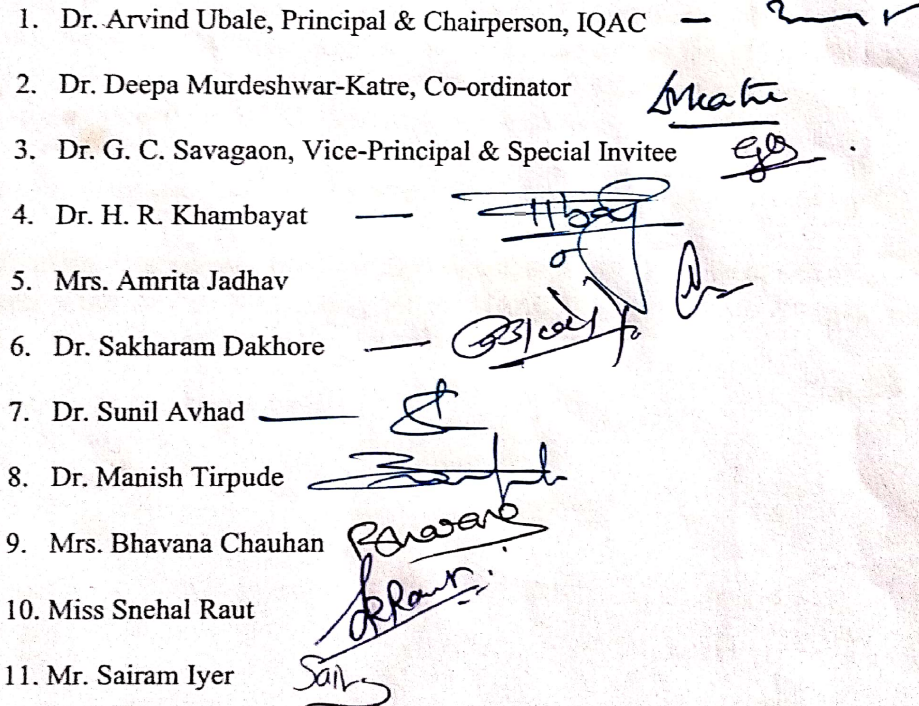 1. Dr. Arvind Ubale, Principal & Chairperson, IQAC –
2. Dr. Deepa Murdeshwar-Katre, Co-ordinator
3. Dr. G. C. Savagaon, Vice-Principal & Special Invitee
4. Dr. H. R. Khambayat —
5. Mrs. Amrita Jadhav
6. Dr. Sakharam Dakhore —
7. Dr. Sunil Avhad —
8. Dr. Manish Tirpude
9. Mrs. Bhavana Chauhan
10. Miss Snehal Raut
11. Mr. Sairam Iyer